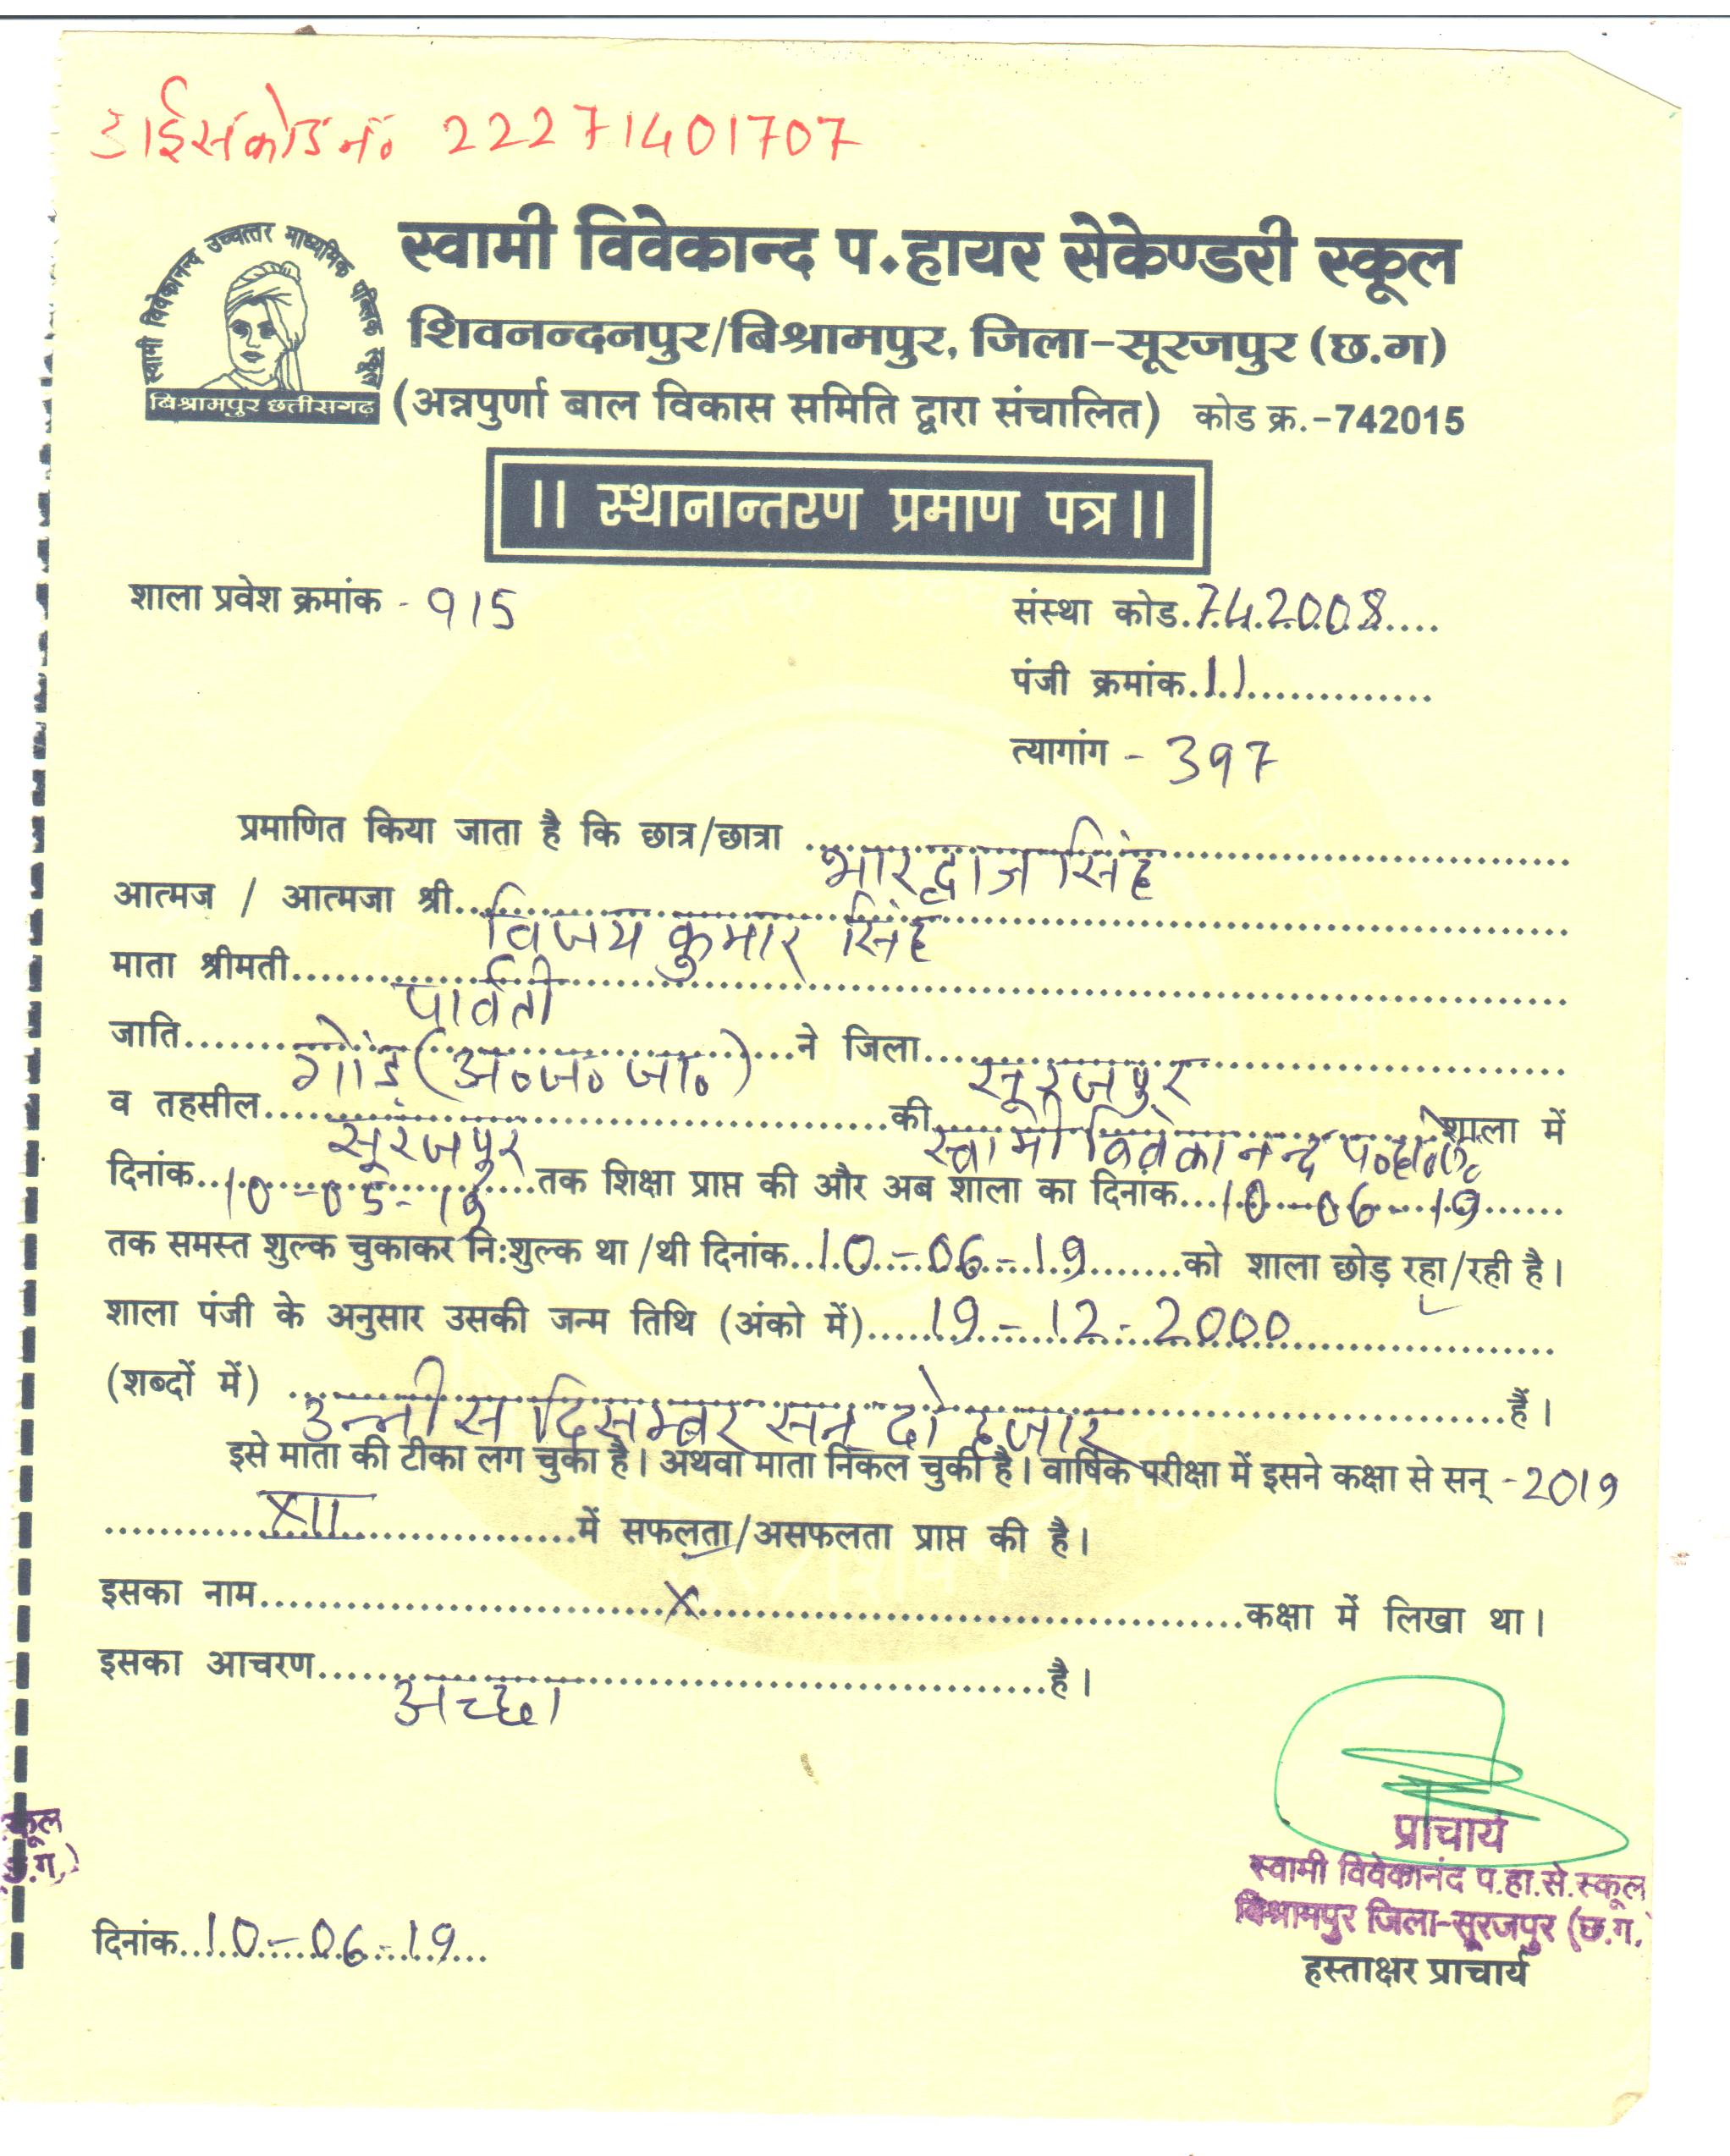 डाईस कोड नं० 22271401707
स्वामी विवेकानन्द उच्चत्तर माध्यमिक पब्लिक स्कूल
बिश्रामपुर छत्तीसगढ़
स्वामी विवेकान्द प.हायर सेकेण्डरी स्कूल
शिवनन्दनपुर/बिश्रामपुर, जिला-सूरजपुर (छ.ग)
(अन्नपुर्णा बाल विकास समिति द्वारा संचालित) कोड क्र.-742015
|| स्थानान्तरण प्रमाण पत्र ||
शाला प्रवेश क्रमांक - 915
संस्था कोड.742008....
पंजी क्रमांक.11..............
त्यागांग - 397
प्रमाणित किया जाता है कि छात्र/छात्रा भारद्वाज सिंह
आत्मज / आत्मजा श्री विजय कुमार सिंह
माता श्रीमती पार्वती
जाति गोंड़ (अ०ज०जा०) ने जिला सूरजपुर
व तहसील सूरजपुर की स्वामी विवेकानन्द प०हा० शाला में
दिनांक 10-05-19 तक शिक्षा प्राप्त की और अब शाला का दिनांक 10-06-19
तक समस्त शुल्क चुकाकर नि:शुल्क था /थी दिनांक 10-06-19 को शाला छोड़ रहा/रही है।
शाला पंजी के अनुसार उसकी जन्म तिथि (अंको में) 19-12-2000
(शब्दों में) उन्नीस दिसम्बर सन् दो हजार हैं।
इसे माता की टीका लग चुका है। अथवा माता निकल चुकी है। वार्षिक परीक्षा में इसने कक्षा से सन् -2019
XII में सफलता/असफलता प्राप्त की है।
इसका नाम x कक्षा में लिखा था।
इसका आचरण अच्छा है।
स्कूल
छ.ग.)
प्राचार्य
स्वामी विवेकानंद प.हा.से.स्कूल
बिश्रामपुर जिला-सूरजपुर (छ.ग.
दिनांक 10-06-19
हस्ताक्षर प्राचार्य